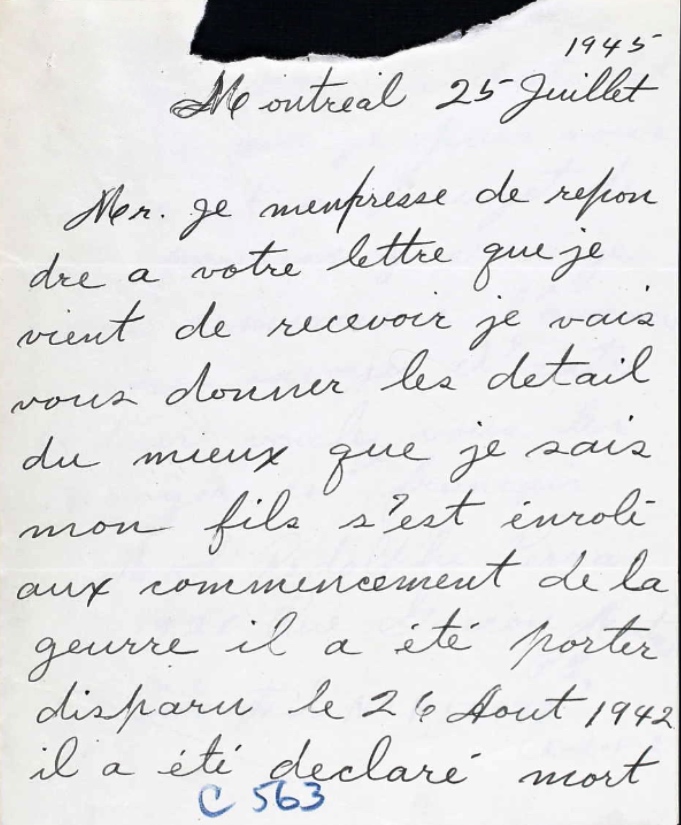 1945
Montreal 25 Juillet
Mr. je menpresse de repon
dre a votre lettre que je
vient de recevoir je vais
vous donner les detail
du mieux que je sais
mon fils s'est enrolé
aux commencement de la
geurre il a été porter
disparu le 26 Aout 1942
il a été declaré mort
C 563